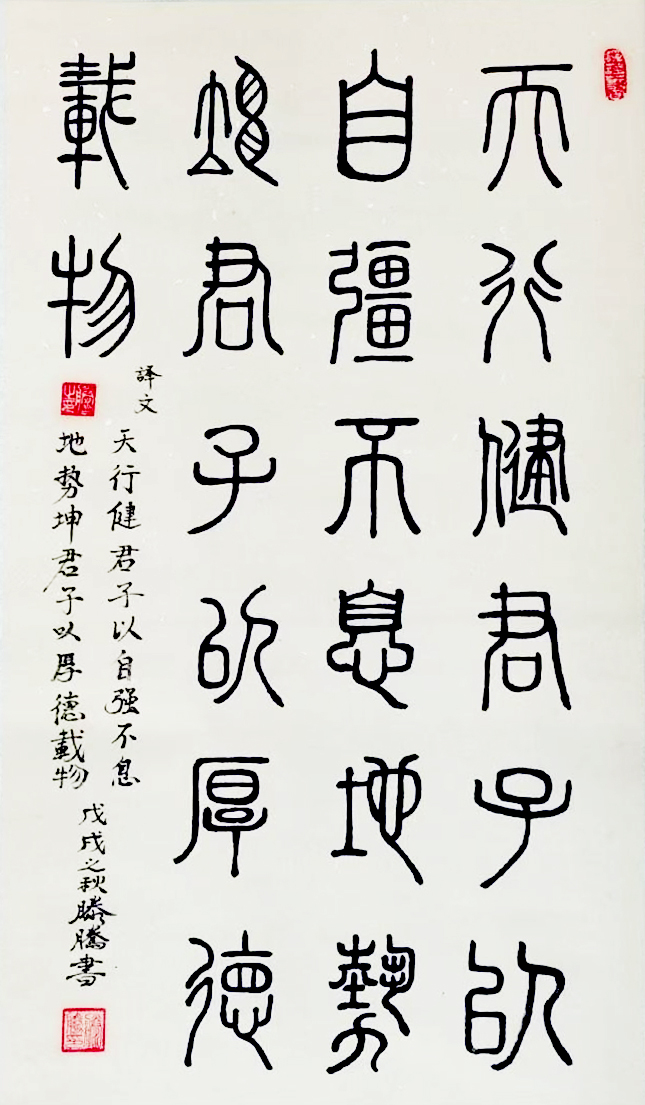 天行健君子以
自彊不息地勢
坤君子以厚德
載物
譯文
天行健君子以自强不息
地势坤君子以厚德載物
戊戌之秋滕騰書